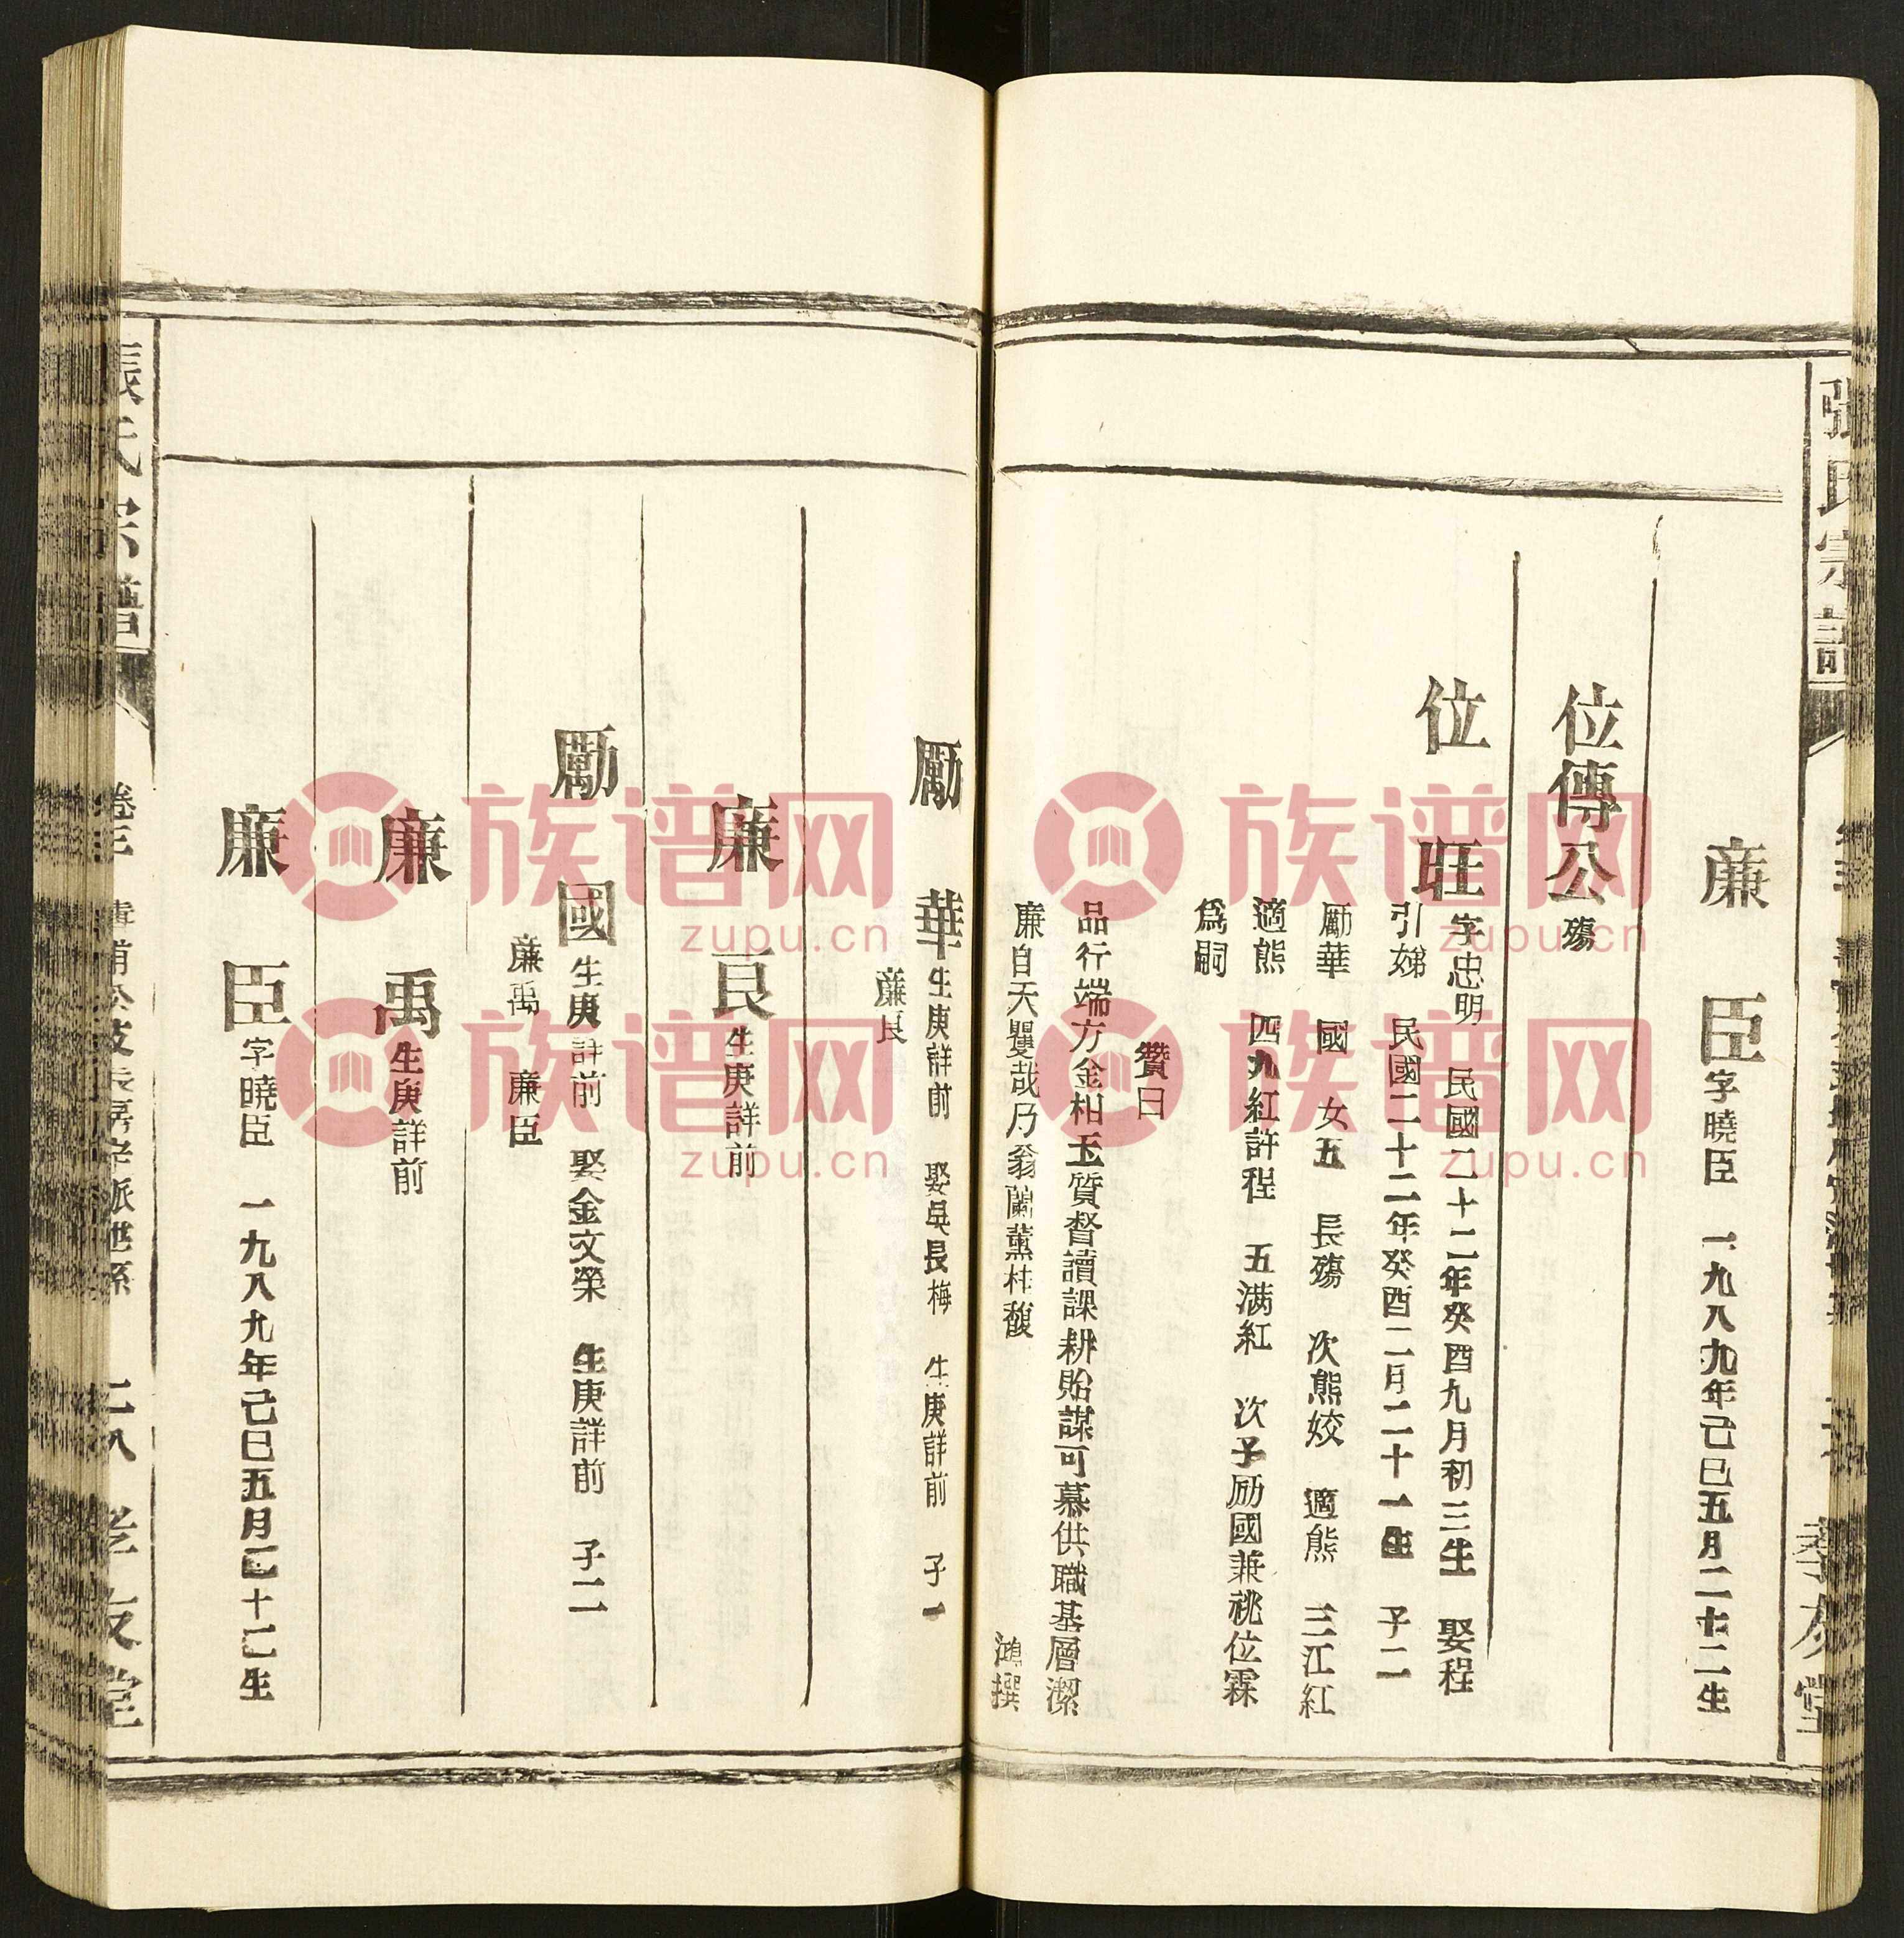 張氏宗譜
孝友堂
廉臣字曉臣 一九八九年己巳五月二十二生
位傳公殤
位旺字忠明 民國二十二年癸酉九月初三生 娶程
引娣 民國二十二年癸酉二月二十一生 子二
勵華 國 女五 長殤 次熊姣 適熊 三江紅
適熊 四九紅許程 五满紅 次子励國兼祧位霖
爲嗣
贊曰
品行端方金相玉質督讀課耕貽謀可慕供職基層潔
廉自天璺哉乃翁蘭薰桂馥 鴻撰
勵華生庚詳前 娶吳良梅 生庚詳前 子一
廉良
廉良生庚詳前
勵國生庚詳前 娶金文榮 生庚詳前 子二
廉禹 廉臣
廉禹生庚詳前
廉臣字曉臣 一九八九年己巳五月二十二生
張氏宗譜
卷三
二八 孝友堂
族谱网
zupu.cn
族谱网
zupu.cn
族谱网
zupu.cn
族谱网
zupu.cn